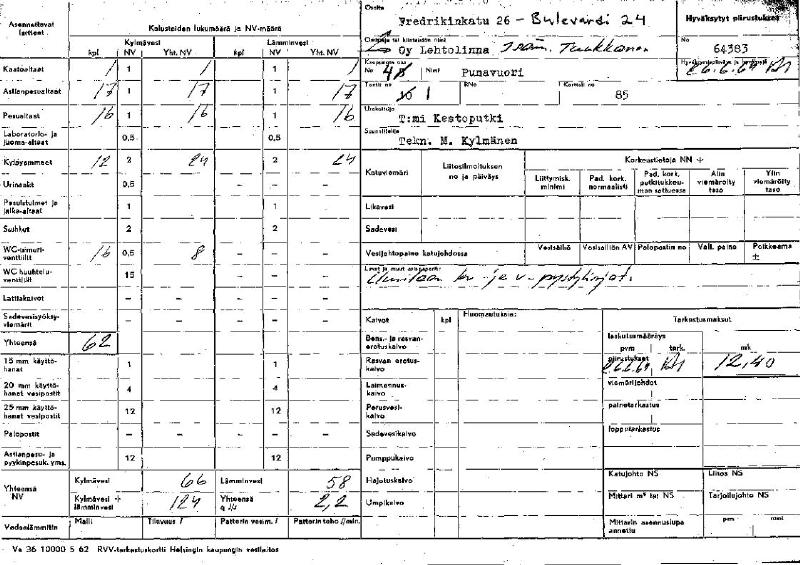 Asennettavat laitteet
Kalusteiden lukumäärä ja NV-määrä
Kylmävesi
Lämminvesi
kpl NV Yht. NV kpl NV Yht. NV
Kaatoaltaat 1 1 1 1
Astianpesualtaat 17 1 17 1 17
Pesualtaat 16 1 16 1 16
Laboratorio- ja juoma-altaat 0,5 0,5
Kylpyammeet 12 2 24 2 24
Urinaalit 0,5 – – –
Pesuistuimet ja jalka-altaat 1 1
Suihkut 2 2
WC-uimuriventtiilit 16 0,5 8 – – –
WC huuhteluventtiilit 15 – – –
Lattiakaivot – – – – –
Sadevesisyöksyviemärit – – – – –
Yhteensä 62
15 mm käyttöhanat 1 1
20 mm käyttöhanat vesipostit 4 4
25 mm käyttöhanat vesipostit 12 12
Palopostit – – – – –
Astianpesu- ja pyykinpesuk. yms. 12 12
Yhteensä NV
Kylmävesi 66 Lämminvesi 58
Kylmävesi + lämminvesi 124 Yhteensä 2,2
Vedenlämmitin Malli Tilavuus l Patterin veim. l Patterin teho l/min.
Va 36 10000 5 62 RVV-tarkastuskortti Helsingin kaupungin vesilaitos
Osoite
Fredrikinkatu 26 - Bulevardi 24
Omistaja tai kiinteistön nimi
Oy Lehtolinna
Kaupungin osa
No 4 Nimi Punavuori
Tontti no 1 RNo Kortteli no 85
Urakoitsija
T:mi Kestoputki
Suunnittelija
Tekn. M. Kylmänen
Hyväksytyt piirustukset
No 64383
26.6.64
Katuviemäri
Liitosilmoituksen no ja päiväys
Korkeustietoja NN +
Liittymisk. minimi
Pad. kork. normaalisti
Pad. kork. putkitukkeuman sattuessa
Alin viemäröity taso
Ylin viemäröity taso
Likavesi
Sadevesi
Vesijohtopaine katujohdossa
Vesisäiliö Vesisäiliön AV Palopostin no Vall. paine Poikkeama ±
Uusitaan kv- ja v-pystylinjat.
Kaivot kpl Huomautuksia:
Bens.- ja rasvanerotuskaivo
Rasvan erotuskaivo
Laimennuskaivo
Perusvesikaivo
Sadevesikaivo
Pumppukaivo
Hajotuskaivo
Umpikaivo
Tarkastusmaksut
laskutusmääräys
pvm tark. mk
piirustukset 26.6.64 12,40
viemärijohdot
painetarkastus
lopputarkastus
Katujohto NS Liitos NS
Mittari m³ tai NS Tarjoilujohto NS
Mittarin asennuslupa annettu pvm nimi